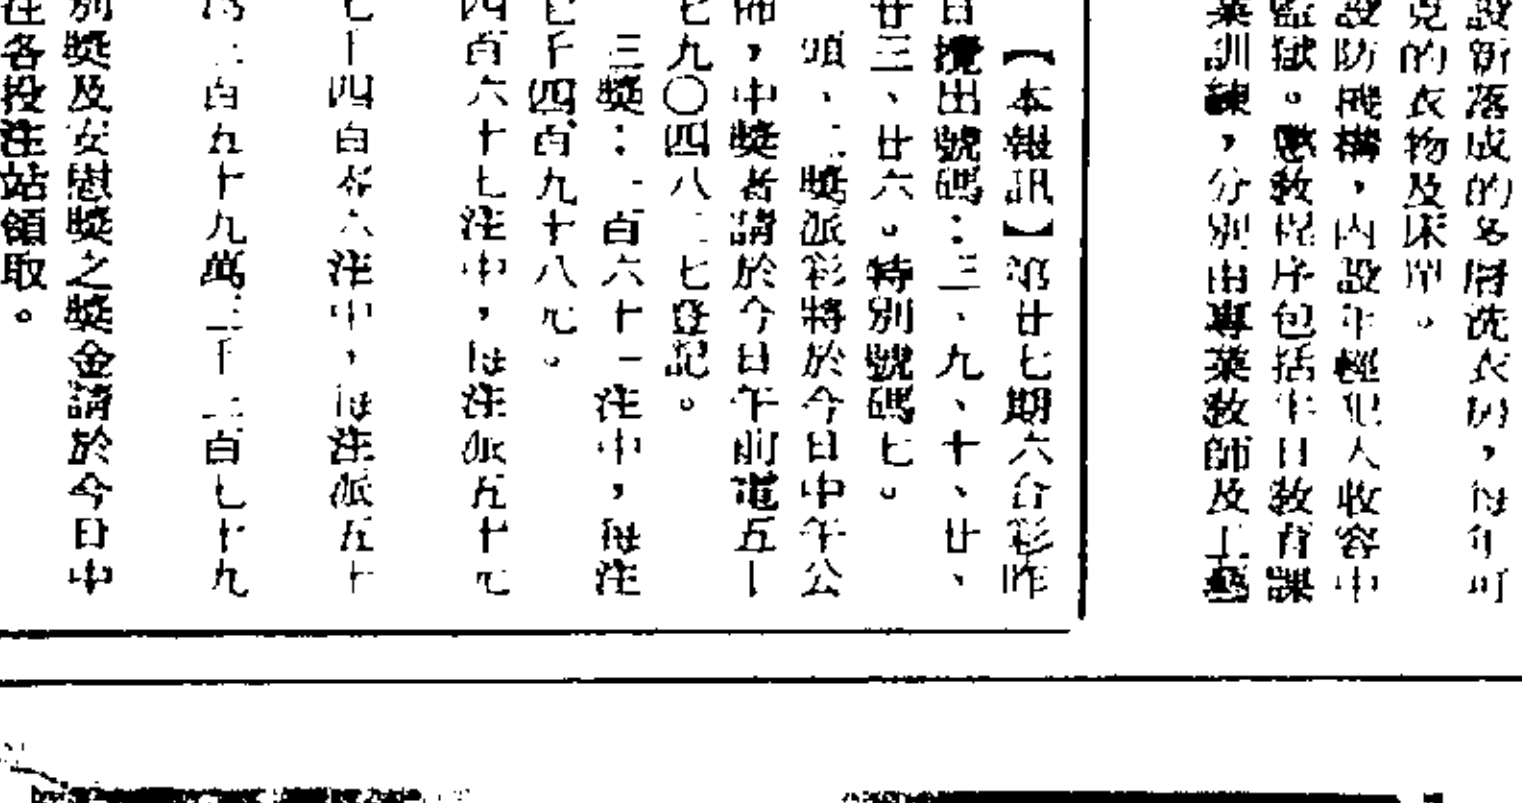 設新落成的多層洗衣房，每年可
克的衣物及床單。
設防機構，內設年輕犯人收容中
監獄。懲教程序包括半日教育課
業訓練，分別由專業教師及工藝
【本報訊】第廿七期六合彩昨
日攪出號碼：三、九、十、廿、
廿三、廿六。特別號碼七。
頭、二獎派彩將於今日中午公
佈，中獎者請於今日午前電五—
七九〇四八二七登記。
三獎：一百六十一注中，每注
七千四百九十八元。
四百六十七注中，每注派五十元
七千四百零六注中，每注派五十
二百九十九萬三千二百七十九
別獎及安慰獎之獎金請於今日中
注各投注站領取。